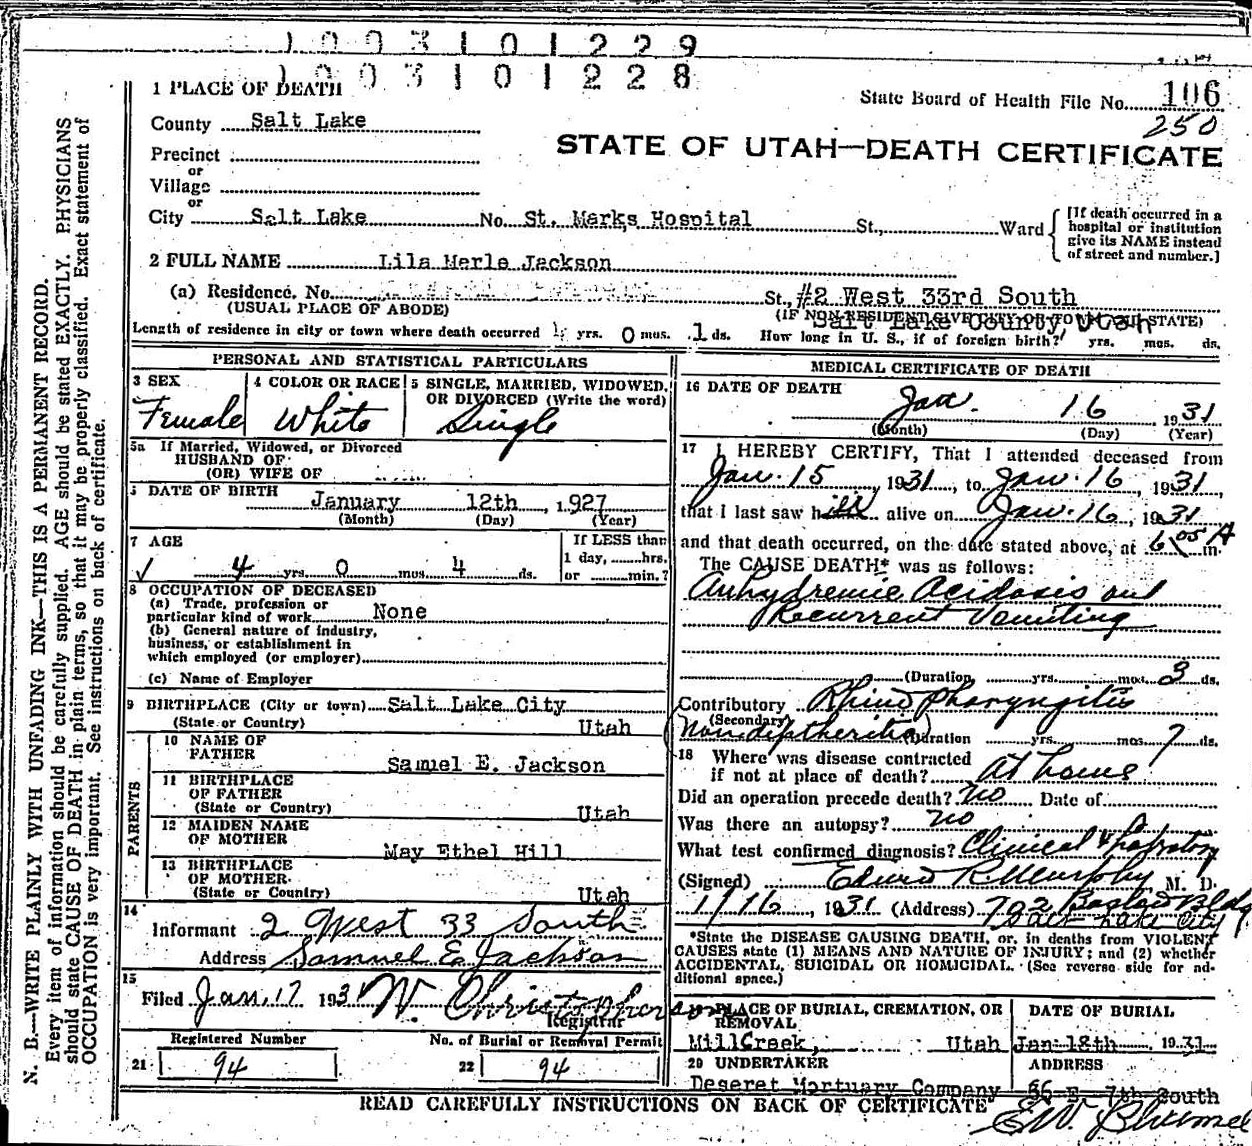 1 0 0 3 1 0 1 2 2 9
1 0 0 3 1 0 1 2 2 8
1 PLACE OF DEATH
State Board of Health File No. 106
250
County Salt Lake
STATE OF UTAH—DEATH CERTIFICATE
Precinct
or
Village
or
City Salt Lake No. St. Marks Hospital St., Ward
[If death occurred in a hospital or institution give its NAME instead of street and number.]
2 FULL NAME Lila Merle Jackson
(a) Residence. No. St., #2 West 33rd South
(USUAL PLACE OF ABODE) (IF NON-RESIDENT GIVE CITY OR TOWN AND STATE)
Salt Lake County, Utah
Length of residence in city or town where death occurred yrs. 0 mos. 1 ds. How long in U. S., if of foreign birth? yrs. mos. ds.
PERSONAL AND STATISTICAL PARTICULARS
3 SEX Female
4 COLOR OR RACE White
5 SINGLE, MARRIED, WIDOWED, OR DIVORCED (Write the word) Single
5a If Married, Widowed, or Divorced
HUSBAND OF
(OR) WIFE OF
DATE OF BIRTH January 12th, 1927
(Month) (Day) (Year)
7 AGE
If LESS than 1 day, hrs. or min.?
4 yrs. 0 mos. 4 ds.
8 OCCUPATION OF DECEASED
(a) Trade, profession or
particular kind of work None
(b) General nature of industry,
business, or establishment in
which employed (or employer)
(c) Name of Employer
9 BIRTHPLACE (City or town) Salt Lake City
(State or Country) Utah
PARENTS
10 NAME OF FATHER Samuel E. Jackson
11 BIRTHPLACE OF FATHER (State or Country) Utah
12 MAIDEN NAME OF MOTHER May Ethel Hill
13 BIRTHPLACE OF MOTHER (State or Country) Utah
14
Informant 2 West 33 South
Address Samuel E Jackson
15
Filed Jan. 17 1931 W. Christopherson
Registrar
Registered Number
No. of Burial or Removal Permit
21 94
22 94
MEDICAL CERTIFICATE OF DEATH
16 DATE OF DEATH
Jan. 16 1931
(Month) (Day) (Year)
17 I HEREBY CERTIFY, That I attended deceased from
Jan. 15, 1931, to Jan. 16, 1931,
that I last saw alive on Jan. 16, 1931
and that death occurred, on the date stated above, at 6 05 A m.
The CAUSE DEATH* was as follows:
Anhydremic Acidosis and
Recurrent Vomiting
(Duration yrs. mos. 3 ds.
Contributory Rhino Pharyngitis
(Secondary)
Non diptheritic (Duration yrs. mos. 7 ds.
18 Where was disease contracted
if not at place of death? At home
Did an operation precede death? no Date of
Was there an autopsy? no
What test confirmed diagnosis? Clinical & Laboratory
(Signed) Edward R Murphy M. D.
1/16, 1931 (Address) 702 Boston Bldg
Salt Lake City
*State the DISEASE CAUSING DEATH, or, in deaths from VIOLENT
CAUSES state (1) MEANS AND NATURE OF INJURY; and (2) whether
ACCIDENTAL, SUICIDAL OR HOMICIDAL. (See reverse side for ad-
ditional space.)
PLACE OF BURIAL, CREMATION, OR REMOVAL
MillCreek, Utah
DATE OF BURIAL
Jan 18th 1931
20 UNDERTAKER
Deseret Mortuary Company
ADDRESS
36 E. 7th South
E.W.
READ CAREFULLY INSTRUCTIONS ON BACK OF CERTIFICATE
N. B.—WRITE PLAINLY WITH UNFADING INK—THIS IS A PERMANENT RECORD.
Every item of information should be carefully supplied. AGE should be stated EXACTLY. PHYSICIANS
should state CAUSE OF DEATH in plain terms, so that it may be properly classified. Exact statement of
OCCUPATION is very important. See instructions on back of certificate.